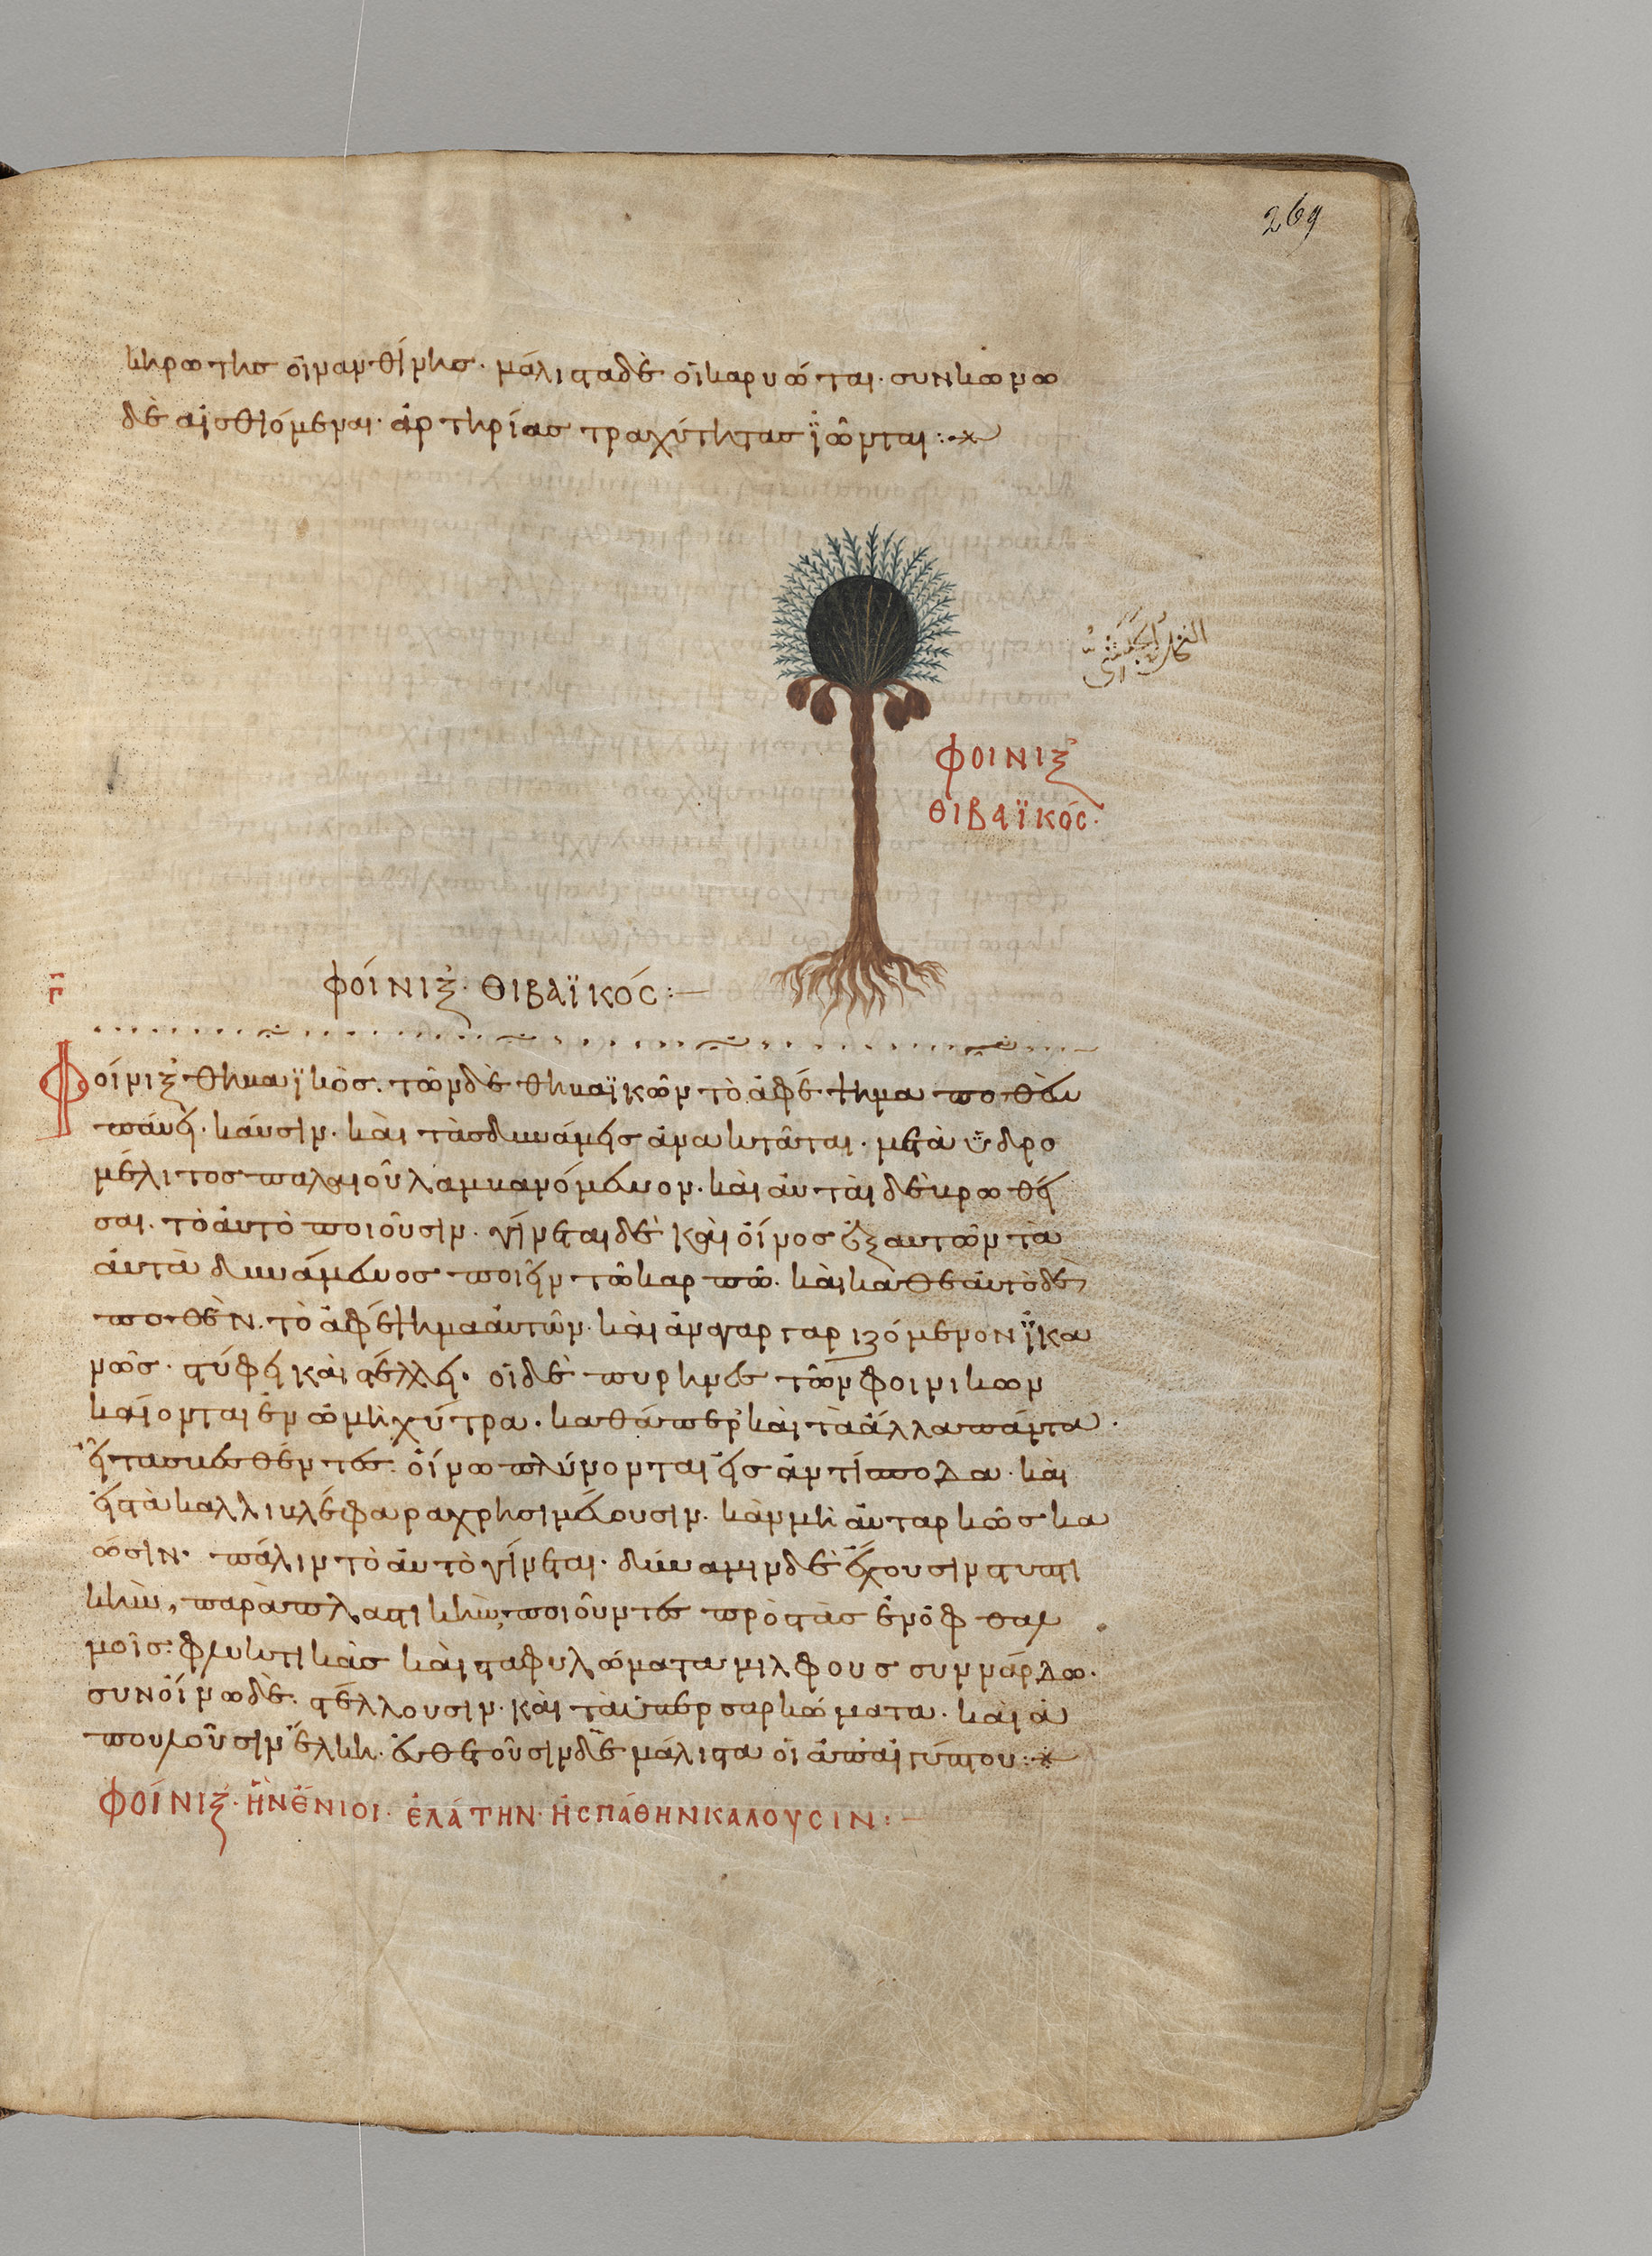 269
κηρωτης οἰνανθίνης· μάλιστα δὲ οἱ καρυώται· συν κωνω
δὲ αἰσθιόμεναι· ἀρτηρίας τραχύτητας ϊῶνται:
ΦΟΙΝΙΞ
ΘΙΒΑΪΚΌC·
ΦΟΊΝΙΞ· ΘΙΒΑΪΚΌC:—
Γ
Φοίνιξ θηβαϊκὸς· τῶν δὲ θηβαϊκῶν τὸ ἀφέψημα ποθὲν
παύει· καύσιν· καὶ τὰς δυνάμεις ἀνακτᾶται· μετὰ ὑδρο
μέλιτος παλαιοῦ λαμβανόμενον· καὶ αὐταὶ δὲ βρωθεῖ
σαι· τὸ αὐτὸ ποιοῦσιν· γίνεται δὲ καὶ οἶνος ἐξ αυτῶν τὰ
ἀυτὰ δυνάμενος ποιεῖν τῶ καρπῶ· καὶ καθε ἀυτὸ δὲ
ποθὲν· τὸ ἀφέψημα ἀυτῶν· καὶ ἀναγαργαριζόμενον ϊκα
νῶς· στύφει καὶ στέλλει· οἱ δὲ πυρῆνες τῶν φοινικων
καίονται ἐν ὠμῆ χύτρα· καθάπερ καὶ τὰ ἄλλα πάντα·
εἶτα σβεσθέντες· οἴνω πλύνονται εἰς ἀντίσποδα· καὶ
εἰς τὰ καλλιβλέφαρα χρησιμεύουσιν· κὰν μὴ ἀυταρκῶς κα
ῶσιν· πάλιν τὸ ἀυτὸ γίνεται· δύναμιν δὲ ἔχουσιν στυπτι
κὴν, παρὰπλαστικὴν, ποιοῦντες πρὸς τὰς ἐν ὀφθαλ
μοῖς· φλυκτικὰς καὶ σταφυλώματα μιλφους συν νάρδω·
συν οἴνω δὲ· στέλλουσιν· καὶ τὰ ὑπερσαρκώματα· καὶ ἀ
πουλοῦσιν ἕλκη· ἐυθετοῦσιν δὲ μάλιστα οἱ ἀπ' αἰγύπτου:
ΦΟΊΝΙΞ· ἫΝ ἜΝΙΟΙ· ἘΛΆΤΗΝ· Ἠ CΠΆΘΗΝ ΚΑΛΟΥCΙΝ:—